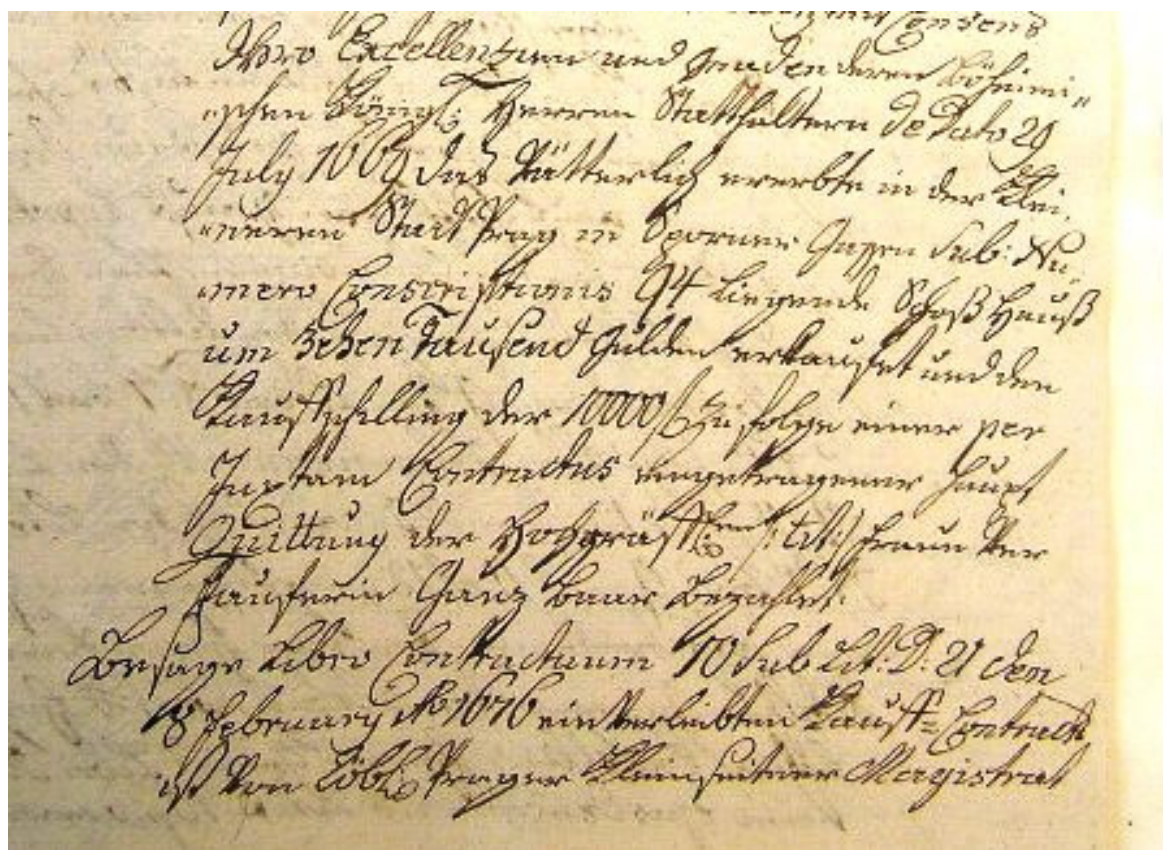 Consens
Ihro Excellenzien und Gnaden deren böheimi=
=schen Königl: Herren Statthaltern de Dato 29
July 1669 das Vätterlich ererbte in der Klei=
=neren Stadt Prag in Sporner Gassen sub: Nu=
=mero Conscriptionis 94 liegende Schoß Hauß
um Zehen Tausend Gulden erkaufet und den
Kauffschilling der 10000 f zu folge einer per
Juxtam Contractus eingetragener Haupt
Quittung der Hochgräffl:en /:tit:/ Fraun Ver
Kauferin Ganz baar bezahlet.
Besage Libro Contractuum 10 sub Lit: D: 21 den
18 February Ao 1676 einverleibten Kauff=Contracts
ist von Löbl: Prager Kleinseitner Magistrat